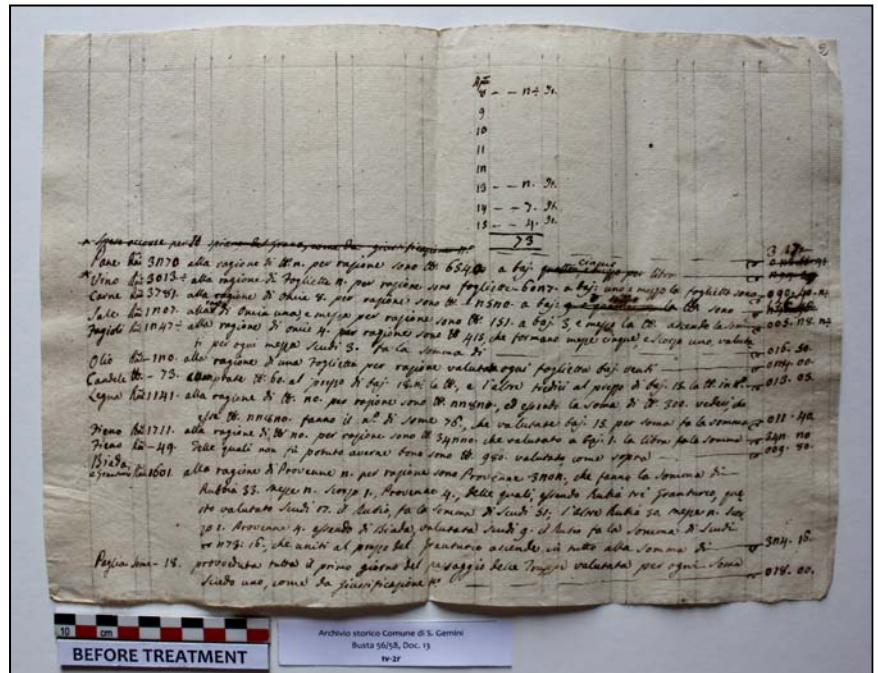 8 - - n÷ St.
9
10
11
1n
13 - - n. St.
14 - - 7. St.
15 - - 4. St.
73
Spese occorse per
Pane 3n70 alla ragione di n. per razione sono 6540 a baj. cinque per libra
Vino 3013÷ alla ragione di Fogliette n. per razione sono fogliette 60n7. a baj. uno e mezzo la foglietta sono 090. 40. n÷
Carne 3781. alla ragione di Oncie 8. per razione sono n5n0. a baj. la sono
Sale 1n07. alla di Oncia una, e mezza per razione sono 151. a baj. 3, e mezzo la ascende la 005. n8. n÷
Fagioli 1n47÷ alla ragione di oncie 4. per razione sono 415, che formano mezze cinque, e scorzo uno, valuta
ti per ogni mezza scudi 3. fa la somma di 016. 50.
Olio - 1n0. alla ragione di una Foglietta per razione valutata ogni foglietta baj. venti 0n4. 00.
Candele - 73. comprate 60. al prezzo di baj. 18.n÷ la, e l'altre tredici al prezzo di baj. 15. la 013. 05.
Legna 1141. alla ragione di n0. per razione sono nn8n0, ed essendo la soma di 300. vedesi, che
esse nn8n0. fanno il n.º di some 76, che valutate baj. 15 per soma fa la somma 011. 40.
Fieno 1711. alla ragione di n0. per razione sono 34nn0, che valutato a baj. 1. la libra fa la somma 34n. n0
Fieno - 49. delle quali non fu potuto averne bono sono 980. valutato come sopra 009. 80.
Biada,
e Granturco 1601. alla ragione di Provenne n. per razione sono Provenne 3n0n, che fanno la Somma di
Rubbia 33. mezze n. scorzo 1., Provenne 4., delle quali, essendo Rubia tré Granturco, que
sto valutato Scudi 17. il Rubio, fa la Somma di Scudi 51; l'altre Rubia 30 mezze n. scor
zo 1. Provenne 4. essendo di Biada, valutata scudi 9. il Rubio fa la Somma di Scudi
n73: 16, che uniti al prezzo del Granturco ascende in tutto alla Somma di 3n4. 16.
Paglia Some - 18. proveduta tutta il primo giorno del passaggio delle Truppe valutata per ogni Soma
Scudo uno, come da Giustificazione n.º 018. 00.
10 cm
BEFORE TREATMENT
Archivio storico Comune di S. Gemini
Busta 56/58, Doc. 13
1v-2r